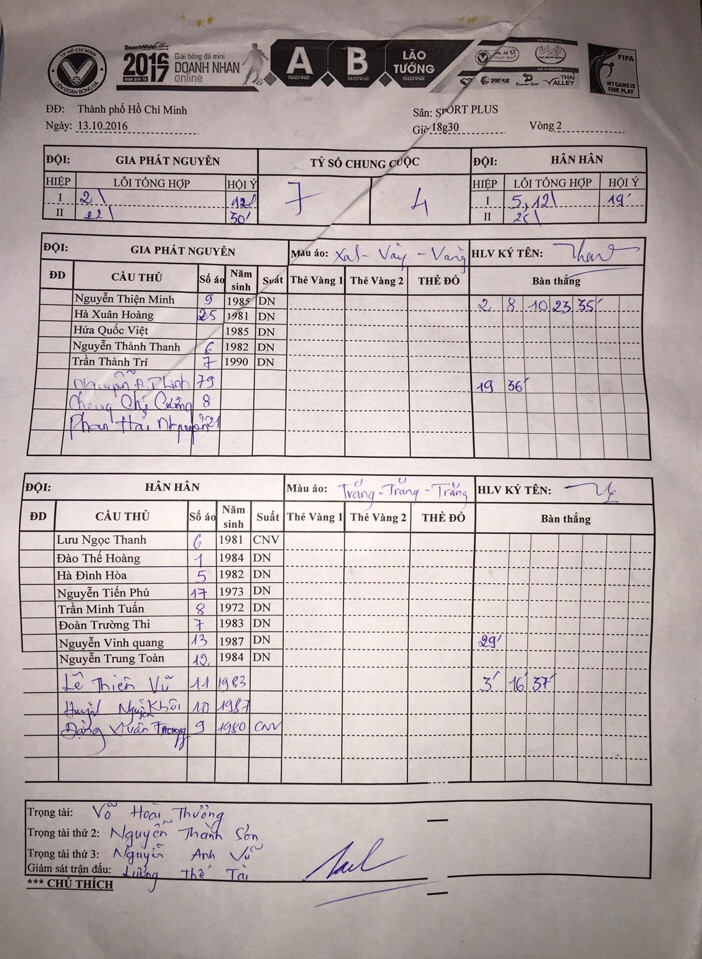 TP HỒ CHÍ MINH
LIÊN ĐOÀN BÓNG ĐÁ
2016 17
Giải bóng đá mini
DOANH NHÂN
online
A B LÃO TƯỚNG
SPORT PLUS THAI VALLEY
FIFA
MY GAME IS FAIR PLAY
ĐĐ: Thành phố Hồ Chí Minh Sân: SPORT PLUS
Ngày: 13.10.2016 Giờ 18g30 Vòng 2
ĐỘI: GIA PHÁT NGUYÊN TỶ SỐ CHUNG CUỘC ĐỘI: HÂN HÂN
HIỆP LỖI TỔNG HỢP HỘI Ý 7 4 HIỆP LỖI TỔNG HỢP HỘI Ý
I I 5, 12\ 19'
II II
ĐỘI: GIA PHÁT NGUYÊN Màu áo: HLV KÝ TÊN:
ĐD CẦU THỦ Số áo Năm sinh Suất Thẻ Vàng 1 Thẻ Vàng 2 THẺ ĐỎ Bàn thắng
Nguyễn Thiện Minh 9 1985 DN 2 8 10 23 35'
Hà Xuân Hoàng 25 1981 DN
Hứa Quốc Việt 1985 DN
Nguyễn Thành Thanh 6 1982 DN
Trần Thành Trí 7 1990 DN
Nguyễn 79 19 36'
Chung Chí Cường 8
Phan Hải Nguyên 21
ĐỘI: HÂN HÂN Màu áo: Trắng - Trắng - Trắng HLV KÝ TÊN:
ĐD CẦU THỦ Số áo Năm sinh Suất Thẻ Vàng 1 Thẻ Vàng 2 THẺ ĐỎ Bàn thắng
Lưu Ngọc Thanh 6 1981 CNV
Đào Thế Hoàng 1 1984 DN
Hà Đình Hòa 5 1982 DN
Nguyễn Tiến Phú 17 1973 DN
Trần Minh Tuấn 8 1972 DN
Đoàn Trường Thi 7 1983 DN
Nguyễn Vinh quang 13 1987 DN 29'
Nguyễn Trung Toàn 12 1984 DN
Lê Thiên Vũ 11 1983 3' 16' 37'
Khôi 10 1987
Đặng Xuân 9 1980 CNV
Trọng tài: Võ Hoài Thưởng
Trọng tài thứ 2: Nguyễn Thành Sơn
Trọng tài thứ 3: Nguyễn Anh Vũ
Giám sát trận đấu: Lương Thế Tài
*** CHÚ THÍCH